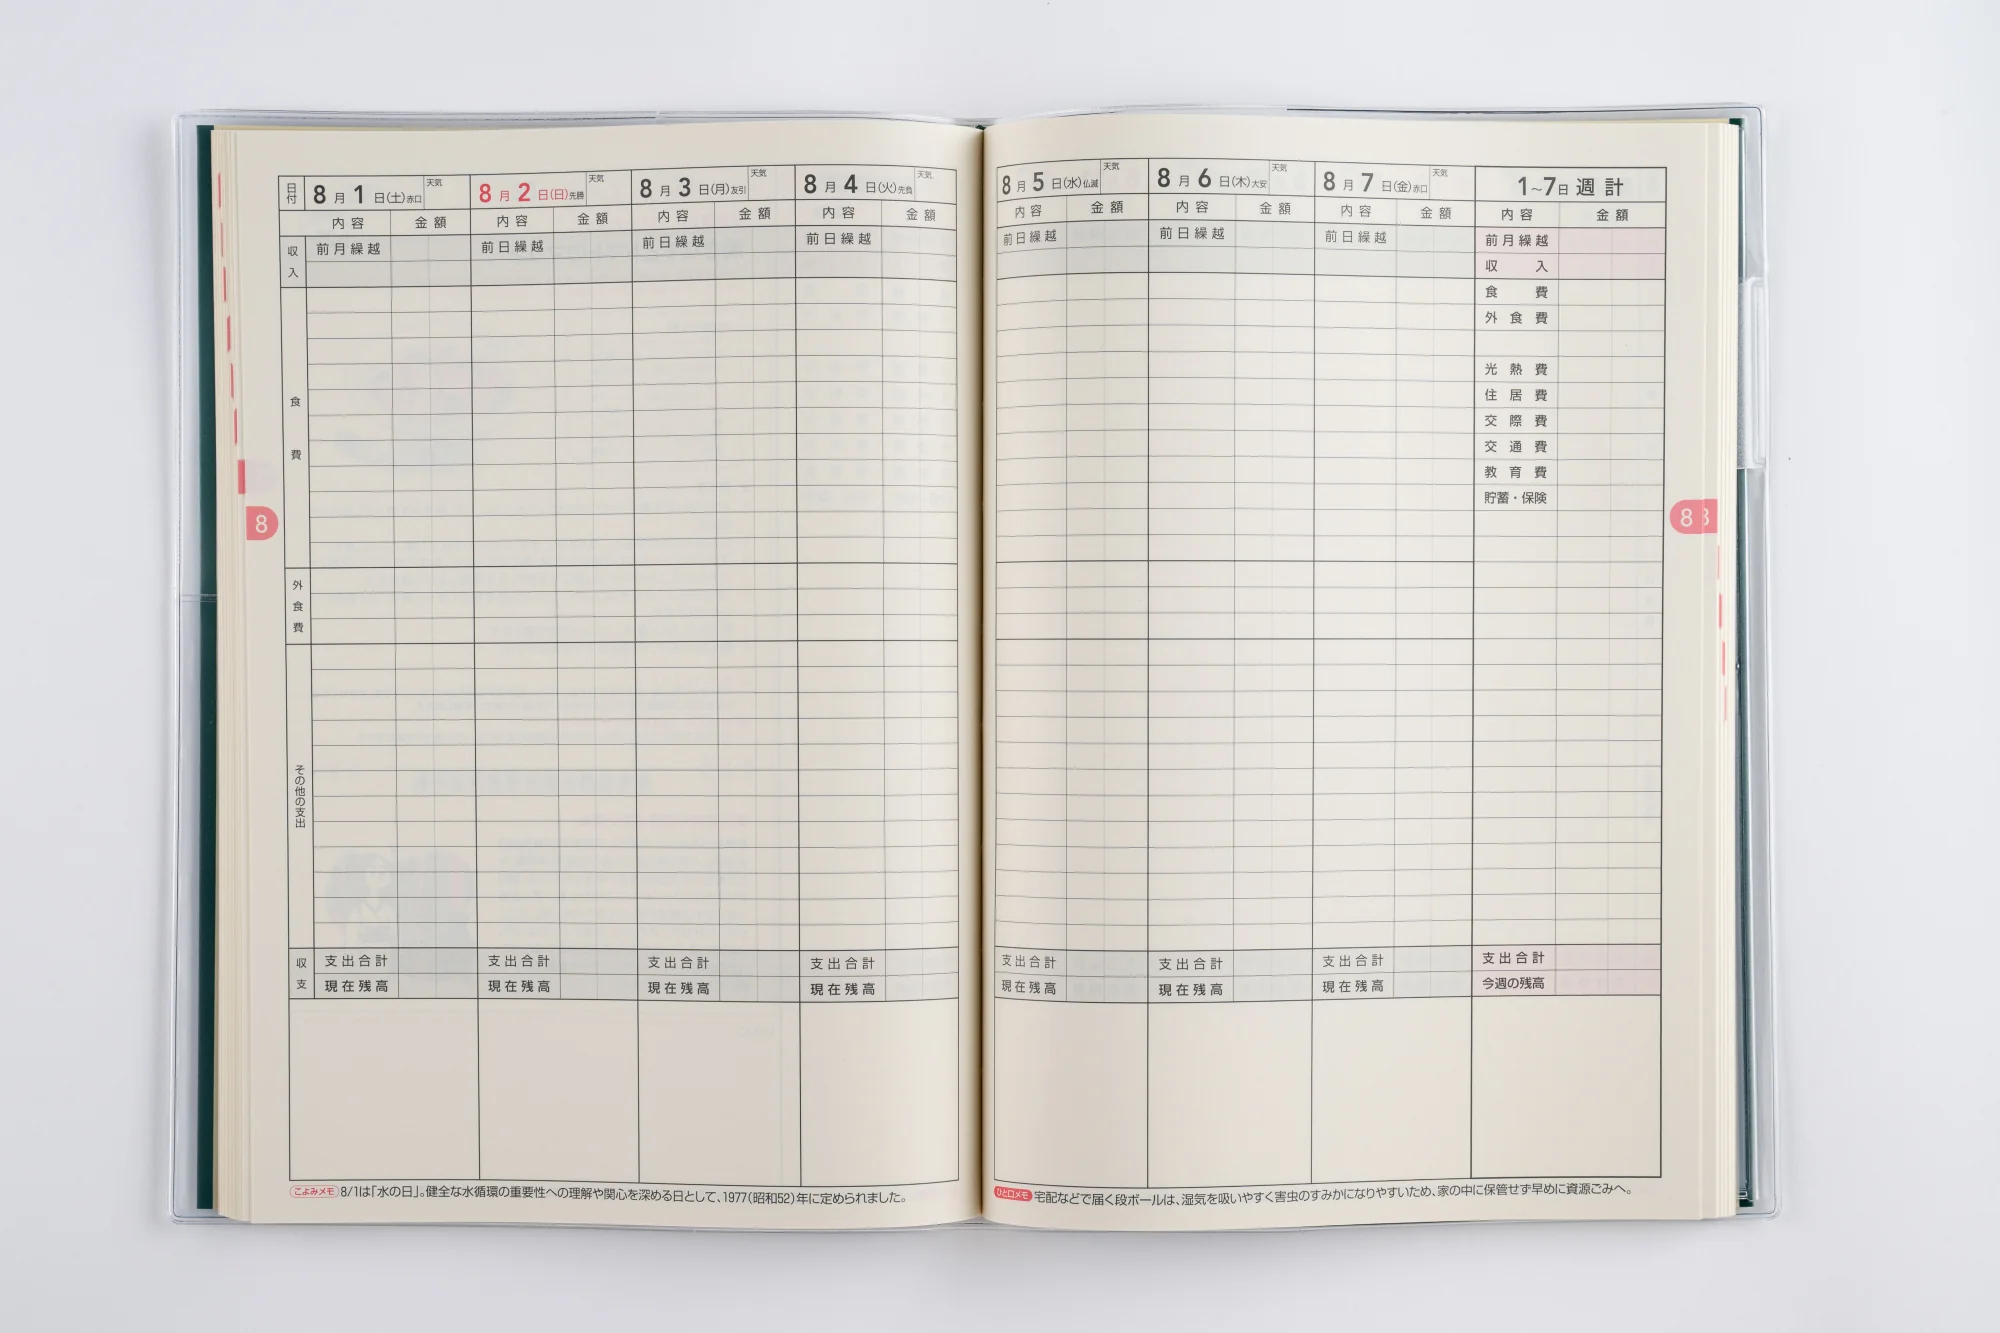 日付 8月1日(土)赤口 天気 8月2日(日)先勝 天気 8月3日(月)友引 天気 8月4日(火)先負 天気
内容 金額 内容 金額 内容 金額 内容 金額
収入 前月繰越 前日繰越 前日繰越 前日繰越
食費
8
外食費
その他の支出
収支 支出合計 支出合計 支出合計 支出合計
現在残高 現在残高 現在残高 現在残高
こよみメモ 8/1は「水の日」。健全な水循環の重要性への理解や関心を深める日として、1977(昭和52)年に定められました。
8月5日(水)仏滅 天気 8月6日(木)大安 天気 8月7日(金)赤口 天気 1~7日 週計
内容 金額 内容 金額 内容 金額 内容 金額
前日繰越 前日繰越 前日繰越 前月繰越
収入
食費
外食費
光熱費
住居費
交際費
交通費
教育費
貯蓄・保険
8 8
支出合計 支出合計 支出合計 支出合計
現在残高 現在残高 現在残高 今週の残高
ひと口メモ 宅配などで届く段ボールは、湿気を吸いやすく害虫のすみかになりやすいため、家の中に保管せず早めに資源ごみへ。